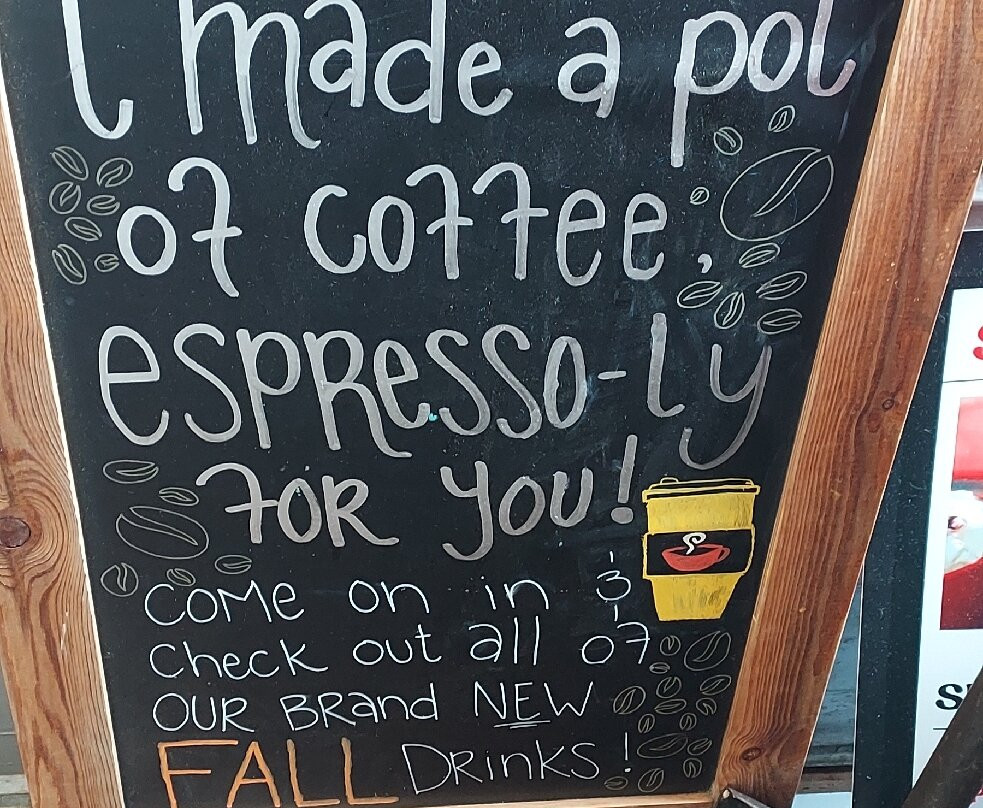 I made a pot
of coffee,
espresso-ly
FOR you!
COME on in &
check out all of
OUR BRand NEW
FALL DRinks!